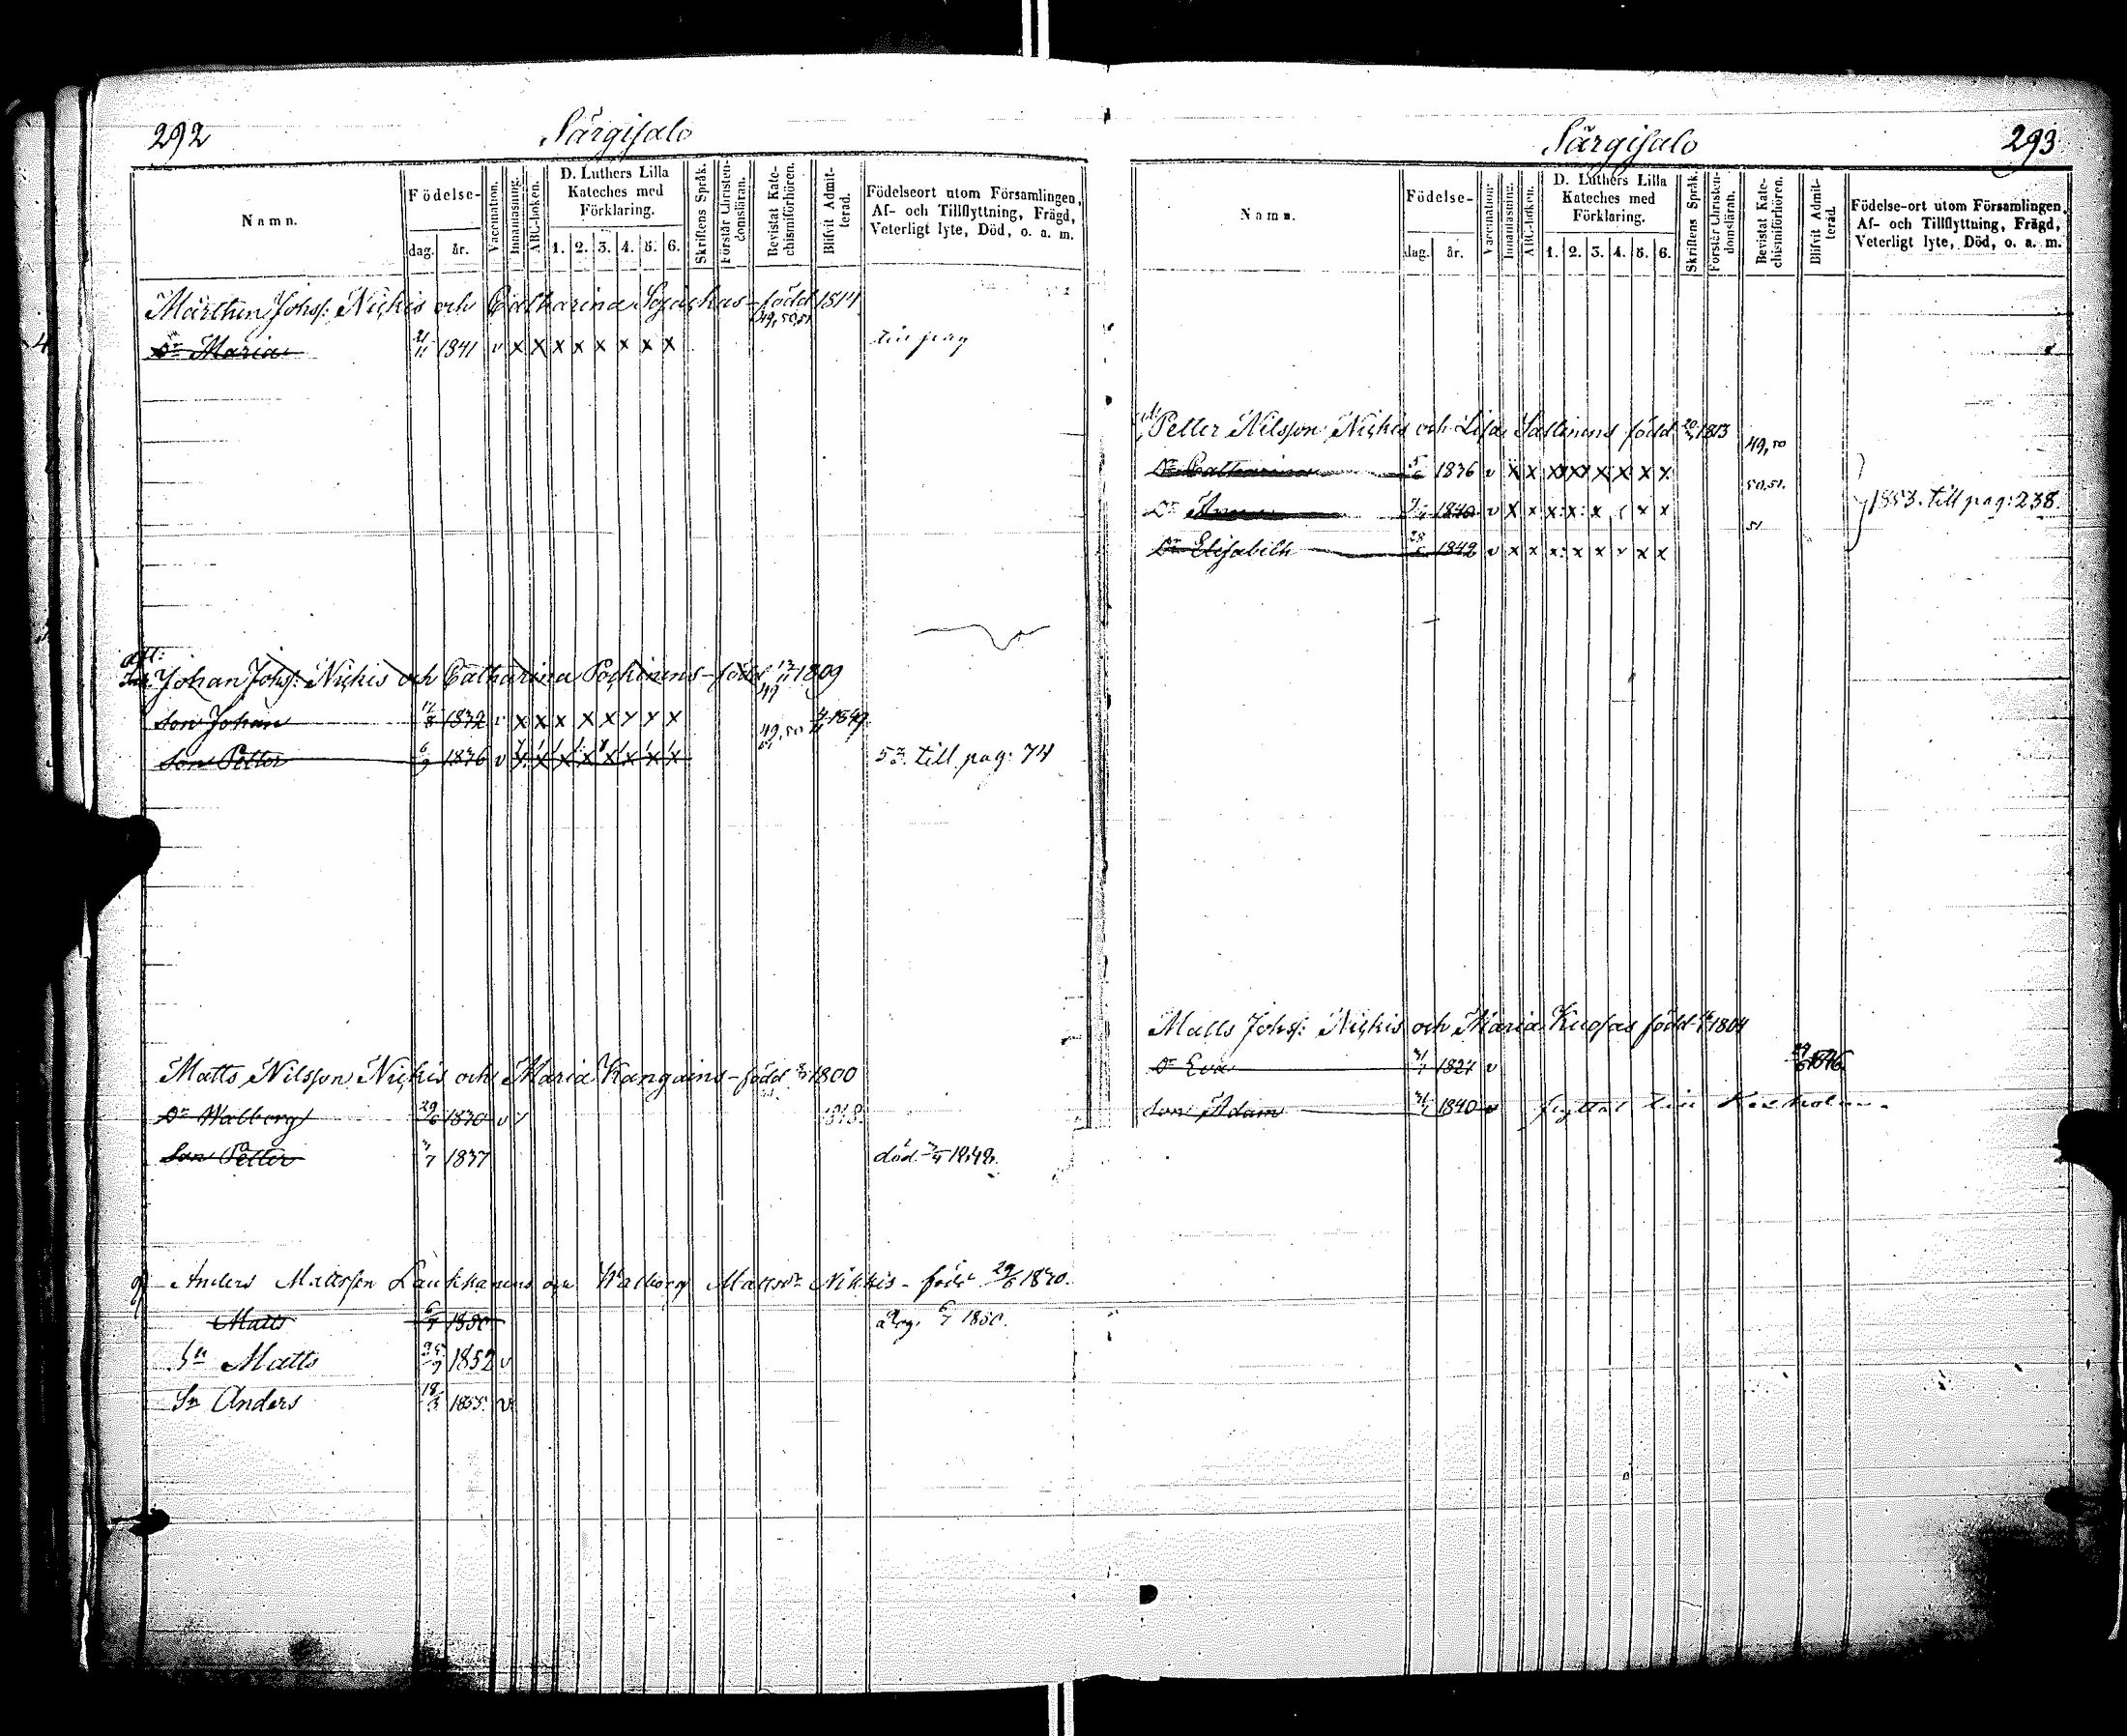 292 Särgisalo
Namn. Födelse- dag. år. Vaccination. Innanläsning. ABC-boken. D. Luthers Lilla Kateches med Förklaring. 1. 2. 3. 4. 5. 6. Skriftens Språk. Förstår Christendomsläran. Bevistat Katechismiförhören. Blifvit Admitterad. Födelseort utom Församlingen, Af- och Tillflyttning, Frägd, Veterligt lyte, Död, o. a. m.
Mårthen Johss: Nickis och Catharina född 1814
49, 50, 51
Dr Maria 21/11 1841 v x x x x x x x x till pag
afl:
Johan Johss: Nickis och Catharina Pockinens - född 1809
49
Son Johan 17/8 1832 v x x x x x x x x 1847
49, 50
51
Son Petter 6/9 1836 v x x x x x x x x 53. till pag: 74
Matts Nilsson Nickis och Maria Kangains - född 1800
Dr Walborg 29/6 1830 v 1848.
Son Petter 7 1837 död 1848.
Anders Mattsson Laukkanens och Walborg Mattsdr Nikkis - född 29/6 1830.
Matts 6/7 1850 6/7 1850.
Sn Matts 25/9 1852 v
Sn Anders 18/3 1855. v
Särgisalo 293
Namn. Födelse- dag. år. Vaccination. Innanläsning. ABC-boken. D. Luthers Lilla Kateches med Förklaring. 1. 2. 3. 4. 5. 6. Skriftens Språk. Förstår Christendomsläran. Bevistat Katechismiförhören. Blifvit Admitterad. Födelse-ort utom Församlingen, Af- och Tillflyttning, Frägd, Veterligt lyte, Död, o. a. m.
Petter Nilsson Nickis och Lisa Sallinens född 1813
49, 50
Dr Catharina 1836 v x x x x x x x x
50, 51.
Dr Anna 1840 v x x x x x x x 1853. till pag: 238.
51
Dr Elisabeth 28 1842 v x x x x x x x x
Matts Johss: Nickis och Maria Kuosas född 1804
Dr Eva 1827 v 1846.
Son Adam 1840 v flyttat till Kexholm.